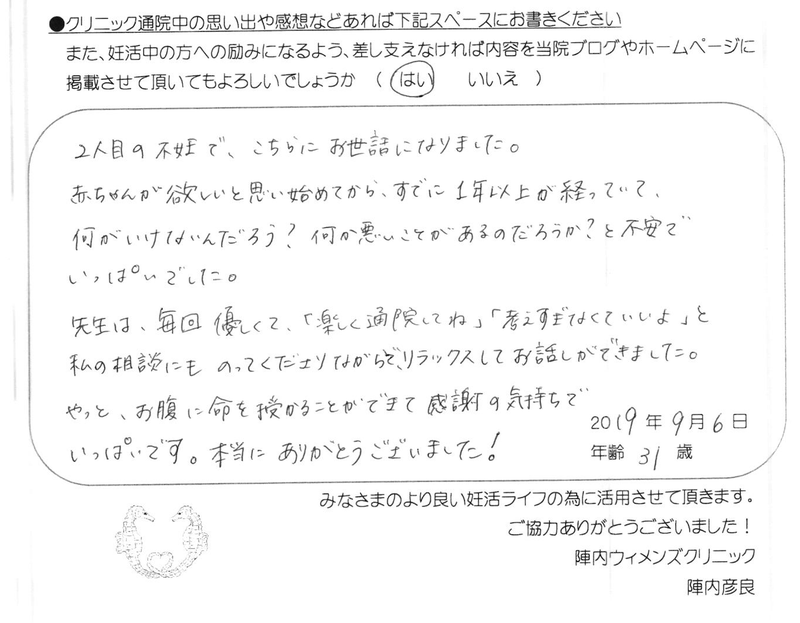 ●クリニック通院中の思い出や感想などあれば下記スペースにお書きください
また、妊活中の方への励みになるよう、差し支えなければ内容を当院ブログやホームページに
掲載させて頂いてもよろしいでしょうか （ はい いいえ ）
2人目の不妊で、こちらにお世話になりました。
赤ちゃんが欲しいと思い始めてから、すでに1年以上が経っていて、
何がいけないんだろう？何か悪いことがあるのだろうか？と不安で
いっぱいでした。
先生は、毎回優しくて、「楽しく通院してね」「考えすぎなくていいよ」と
私の相談にものってくださりながらで、リラックスしてお話しができました。
やっと、お腹に命を授かることができて感謝の気持ちで
いっぱいです。本当にありがとうございました！
2019年9月6日
年齢 31 歳
みなさまのより良い妊活ライフの為に活用させて頂きます。
ご協力ありがとうございました！
陣内ウィメンズクリニック
陣内彦良